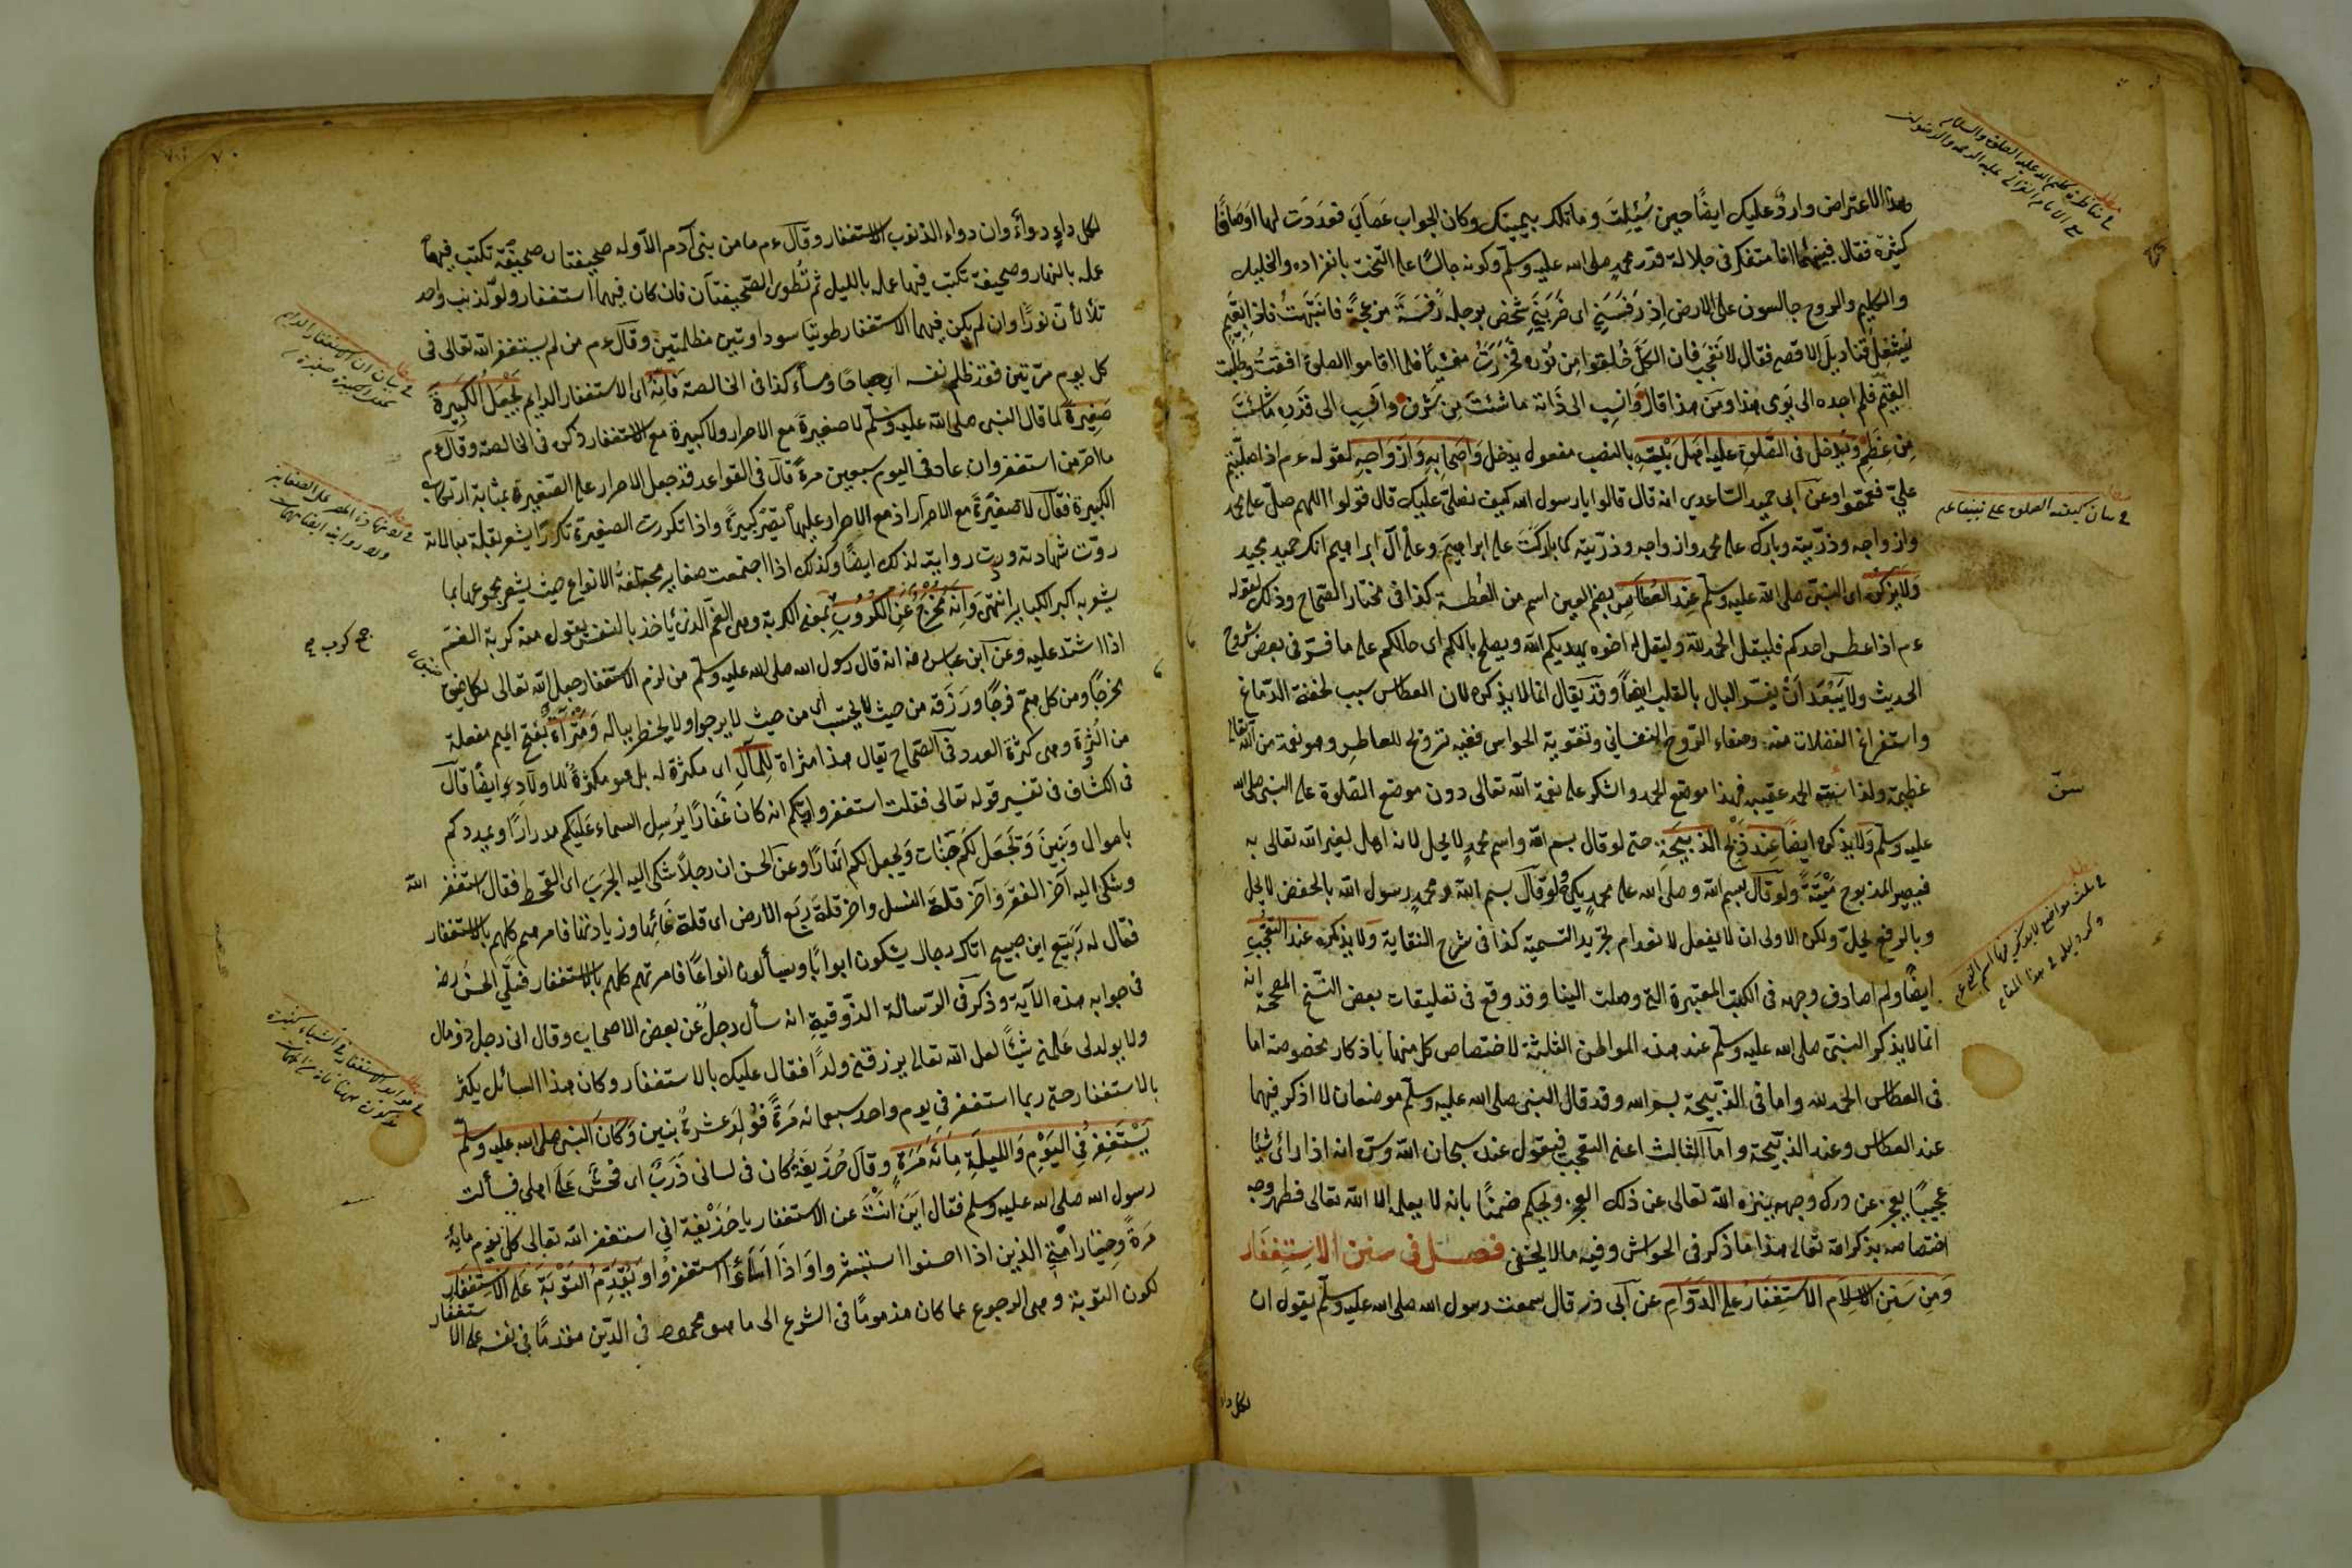 وهذا الاعتراض وارد عليك ايضًا حين سُئِلتَ وما تلك بيمينك وكان الجواب عَصَايَ فعدَدَت لها اوصافًا
كثيرة فقال فبينما انا متفكر فى جلالة قدر محمدٍ صلى الله عليه وسلم وكونه جالسًا على التخت بانفراده والخليل
والكليم والروح جالسون على الارض اِذ رَفَسَنِى اى ضَرَبَنِى شخص برجله رَفسَةً مزعجةً فانتَبَهتُ فاذا بقَيِّمٍ
يُشعِلُ قناديلَ الاقصى فقال لا تعجَب فان الكلَّ خُلِقوا مِن نُورِه فَخَرَرتُ مغشيًا فلما اقاموا الصلوة افقتُ وطلبت
القيّمَ فلم اجده الى يومى هذا ومن هذا قال وَانسِب الى ذَاته ما شئتَ مِن شَرَفٍ وانسِب الى قَدرِه مَا شئتَ
مِن عِظَمٍ ويُدخل فى الصَّلوةِ عليه اهلَ بَيتِهِ بالنصب مفعول يدخل وَاصحَابِهِ وَاَزوَاجِهِ لقوله ءم اذا صليتم
علىّ فعمّموا وعن ابى حميد السّاعدى انه قال قالوا يا رسول الله كيف نصلى عليك قال قولوا اللهم صلّ على محمد
وازواجه وذرّيته وبارك على محمد وازواجه وذرّيته كما باركتَ على ابراهيمَ وعلى آل ابراهيم انك حميد مجيد
وَلا يَذكُرُه اى النبىّ صلى الله عليه وسلم عِندَ العُطَاسِ بضم العين اسم من العُطسة كذا فى مختار الصّحاح وذلك لقوله
ءم اذا عطس احدكم فليقل الحمد لله وليقل له اخوه يهديكم الله ويصلح بالكم اى حالكم على ما فسّر فى بعض شروح
الحديث ولا يَبعُدُ اَنْ يفسّر البال بالقلب ايضًا وقد يقال انما لا يذكره لان العطاس سبب لخفة الدّماغ
واستفراغ الفضلات منه وصفاء الرّوح النفسانى وتقوية الحواس ففيه ترويح للعاطس وهو نعمة من الله تعالى
عظيمة ولذا سُنّ الحمد عقيبه فهذا موضع الحمد والشكر على نعمة الله تعالى دون موضع الصّلوة على النبى صلى الله
عليه وسلم وَلا يذكره ايضًا عِندَ ذَبحِ الذبيحَةِ حتى لو قال بسم الله واسم محمدٍ لا يحل لانه اهل لغير الله تعالى به
فيصير المذبوح مَيْتَةً ولو قال بسم الله وصلى الله على محمدٍ يكره ولو قال بسم الله محمدٍ رسول الله بالخفض لا يحل
وبالرفع يحلّ ولكن الاولى ان لا يفعل لانعدام تجريد التسمية كذا فى شرح النقاية ولا يذكره عند التعجّبِ
ايضًا ولم اصادف وجهه فى الكتب المعتبرة التى وصلت الينا وقد وقع فى تعليقات بعض النسخ المصححة انه
انما لا يذكر النبىّ صلى الله عليه وسلم عند هذه المواطن الثلثة لاختصاص كل منها باذكار مخصوصة اما
فى العطاس الحمد لله واما فى الذبيحة بسم الله وقد قال النبى صلى الله عليه وسلم موضعان لا اذكر فيهما
عند العطاس وعند الذبيحة واما الثالث اعنى التعجب فيقول عنده سبحان الله وسرّه انه اذا رأى شيئا
عجيبًا يعجز عن درك وجهه ينزه الله تعالى عن ذلك العجز ويحكم ضمنًا بانه لا يعلمه الا الله تعالى فظهر وجه
اختصاصه بذكر الله تعالى هذا ما ذكر فى الحواشى وفيه ما لا يخفى فصل فى سنن الاِستِغفَار
وَمِن سَنَنِ الاِسلَامِ الاستِغفَارُ على الدّوَامِ عن ابى ذر قال سمعت رسول الله صلى الله عليه وسلم يقول ان
فى بيان كيفية الصلوة على نبينا عم
سنّ
لكل داء
لكل داءٍ دواءً وان دواء الذنوب الاستغفار وقال ءم ما من بنى آدم الا وله صحيفتان صحيفة تكتب فيها
عمله بالنهار وصحيفة تكتب فيها عمله بالليل ثم تُطوى الصحيفتان فان كان فيهما استغفار ولو لذنب واحد
تلألأتا نورًا وان لم يكن فيهما الاستغفار طويتا سوداوتين مظلمتين وقال ءم من لم يستغفر الله تعالى فى
كل يوم مرّتين فقد ظلم نفسه اى صباحًا ومساءً كذا فى الخالصة فَاِنّهُ اى الاستغفار الدايم يَجعَلُ الكَبِيرَةَ
صَغِيرَةً كما قال النبى صلى الله عليه وسلم لا صغيرةَ مع الاصرار ولا كبيرة مع الاستغفار ذكره فى الخالصة وقال ءم
ما اصرّ من استغفر وان عاد فى اليوم سبعين مرة قال فى القواعد قد جعل الاصرار على الصّغيرة بمثابة ارتكاب
الكبيرة فقال لا صغيرة مع الاصرار اذ مع الاصرار عليها تصير كبيرة واذا تكررت الصغيرة تكررًا يشعر بقلّة مبالاته
ردّت شهادته وردت روايته لذلك ايضًا وكذلك اذا اجتمعت صغاير مختلفةُ الانواع حيث يشعر مجموعها بما
يشعر به اكبر الكباير انتهى وَانه مَخرَجٌ عَنِ الكُرُوبِ بمعنى الكربة وهى الغمّ الذى يأخذ بالنفس يقول منه كربة الغمّ
اذا اشتد عليه وعن ابن عباس رضه انه قال رسول الله صلى الله عليه وسلم من لزم الاستغفار جعل الله تعالى لكل ضيق
مخرجًا ومن كل همّ فرجًا ورَزَقه من حيث لا يحتسب اى من حيث لا يرجوا ولا يخطر بباله وَمَثرَاةٌ بفتح الميم مفعلة
من الثروة وهى كثرة العدد فى الصّحاح يقال هذا مثراة لِلمَالِ اى مكثرة له بل هو مكثرةٌ للاولادِ ايضًا قال
فى الكشاف فى تفسير قوله تعالى فقلت استغفروا ربّكم انه كان غَفارًا يُرسِل السماءَ عَلَيكم مدرارًا ويمددكم
باموال وَبَنِينَ وَيَجعَل لكُم جَنّات وَيجعل لكم انهارًا وعن الحسن ان رجلًا شكى اليه الجَدبَ اى القحط فقال استغفر الله
وشكى اليه آخر الفقرَ وآخر قلةَ النسل واخر قلةَ رَيع الارض اى قلة نمائها وزيادتها فامرهم كلهم بالاستغفار
فقال له رَبيع ابن صبيح اتاك رجال يشكون ابوابًا ويسألون انواعًا فامرتهم كلهم بالاستغفار فتلى الحسن رضه
فى جوابه هذه الآية وذكر فى الرّسالة الذّوقية انه سأل رجلٌ عن بعض الاصحاب وقال انى رجل ذو مال
ولا يولد لى علمنى شيئًا لعل الله تعالى يرزقنى ولدًا فقال عليك بالاستغفار وكان هذا السائل يكثر
بالاستغفار حتى ربما استغفر فى يوم واحد سبعمائه مَرّةً فوُلِدَ عشرةُ بنين وَكَانَ النبى صلى الله عليه وسلم
يَسْتَغفِرُ فِى اليَوْمِ وَالليلَةِ مِائَةَ مَرَةٍ وقال حُذَيفَةُ كان فى لسانى ذَرَبٌ اى فحشٌ عَلى اهلى فسألت
رسول الله صلى الله عليه وسلم فقال اَينَ اَنْتَ عن الاستغفار يا حُذَيْفة انى استغفر الله تعالى كلّ يَومٍ مائةَ
مَرةً وخيار امّتى الذين اذا احسنوا استبشروا وَاذَا اَسَاءُوا استغفرُوا وَيُقَدّمُ التّوبَةَ عَلى الاستِغفَارِ
لكون التوبة وهى الرجوع عما كان مذمومًا فى الشرع الى ما هو محمود فى الدّين مقدمًا فى نفسه على الاستغفار